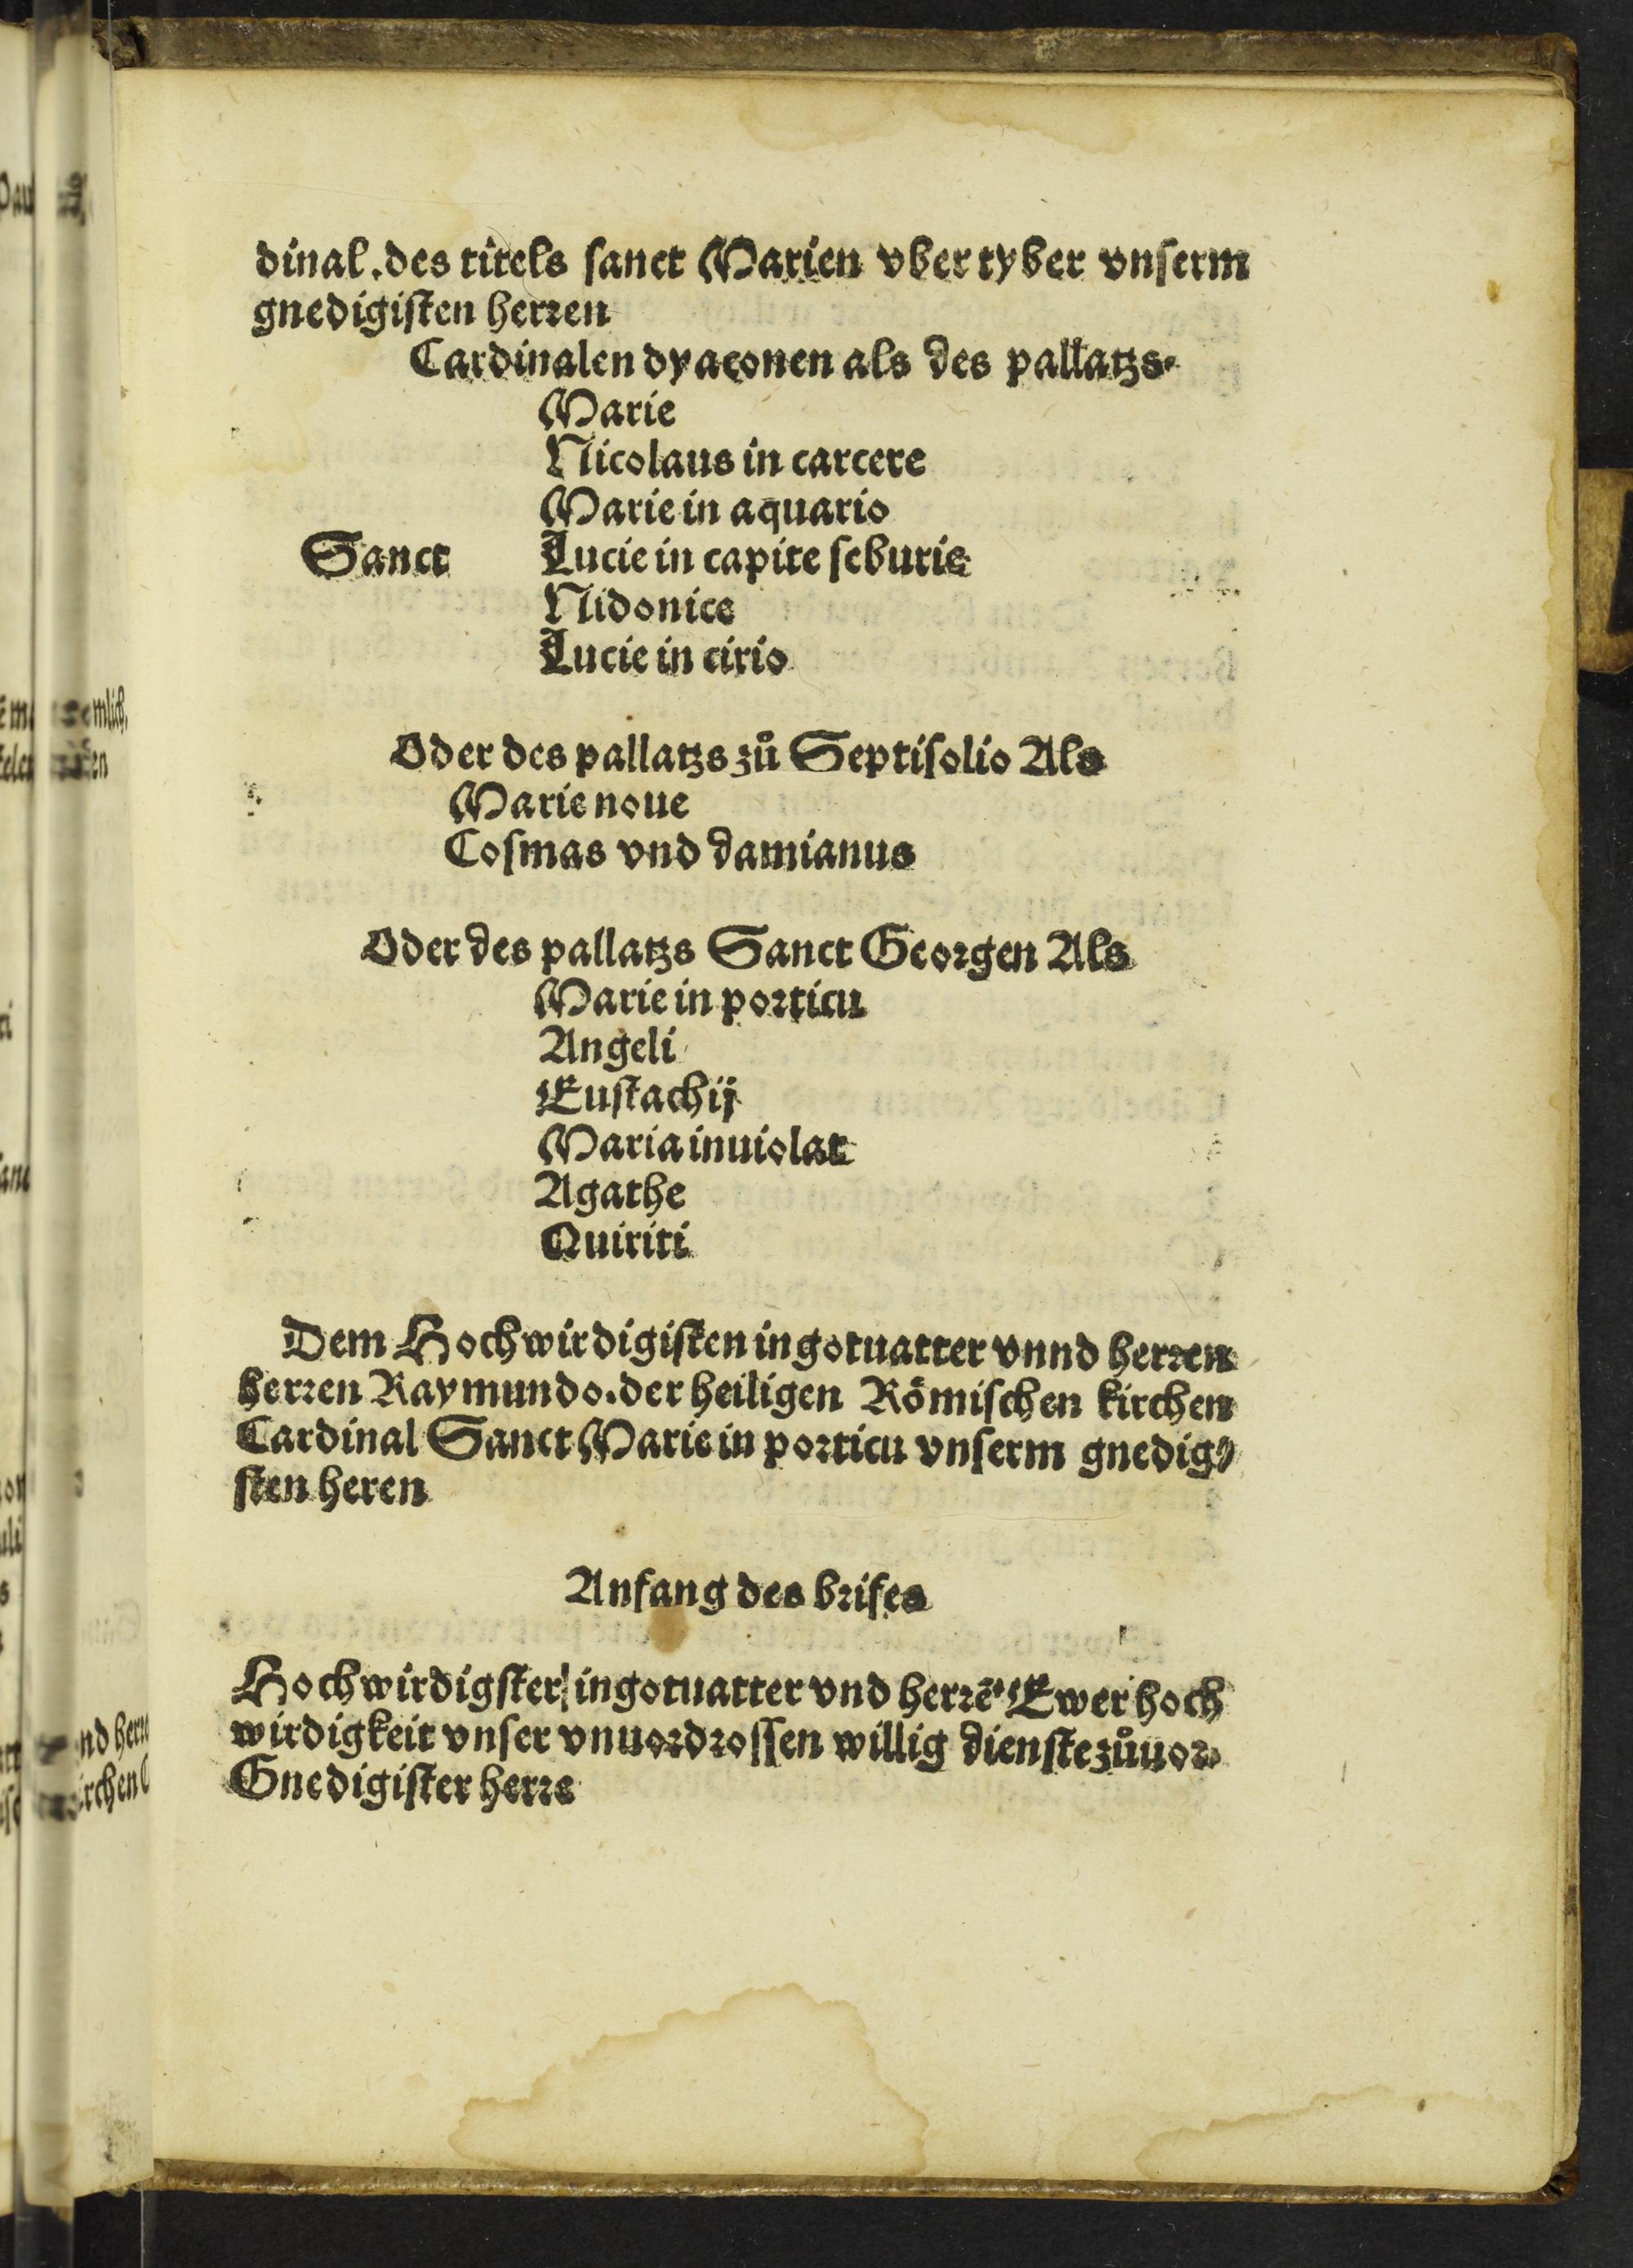 dinal. des titels ſanct Marien vber tyber vnſerm
gnedigiſten herꝛen
Cardinalen dyaconen als des pallatzs
Marie
Nicolaus in carcere
Marie in aquario
Sanct Lucie in capite ſeburie
Nidonice
Lucie in cirio
Oder des pallatzs zů Septiſolio Als
Marie noue
Coſmas vnd damianus
Oder des pallatzs Sanct Geoꝛgen Als
Marie in poꝛticu
Angeli
Euſtachij
Maria inuiolat
Agathe
Quiriti
Dem Hochwirdigiſten in gotuatter vnnd herꝛen
herꝛen Raymundo. der heiligen Römiſchen kirchen
Cardinal Sanct Marie in poꝛticu vnſerm gnedig⸗
ſten heren
Anfang des bꝛifes
Hochwirdigſter in gotuatter vnd herꝛē Ewer hoch
wirdigkeit vnſer vnuoꝛdꝛoſſen willig dienſte zůuoꝛ
Gnedigiſter herꝛe